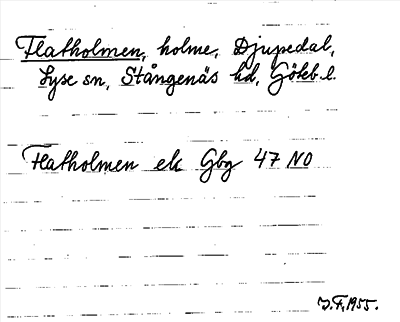 Flatholmen, holme, Djupedal,
Lyse sn, Stångenäs hd, Göteb l.
Flatholmen ek Gbg 47 NO
J.F. 1955.